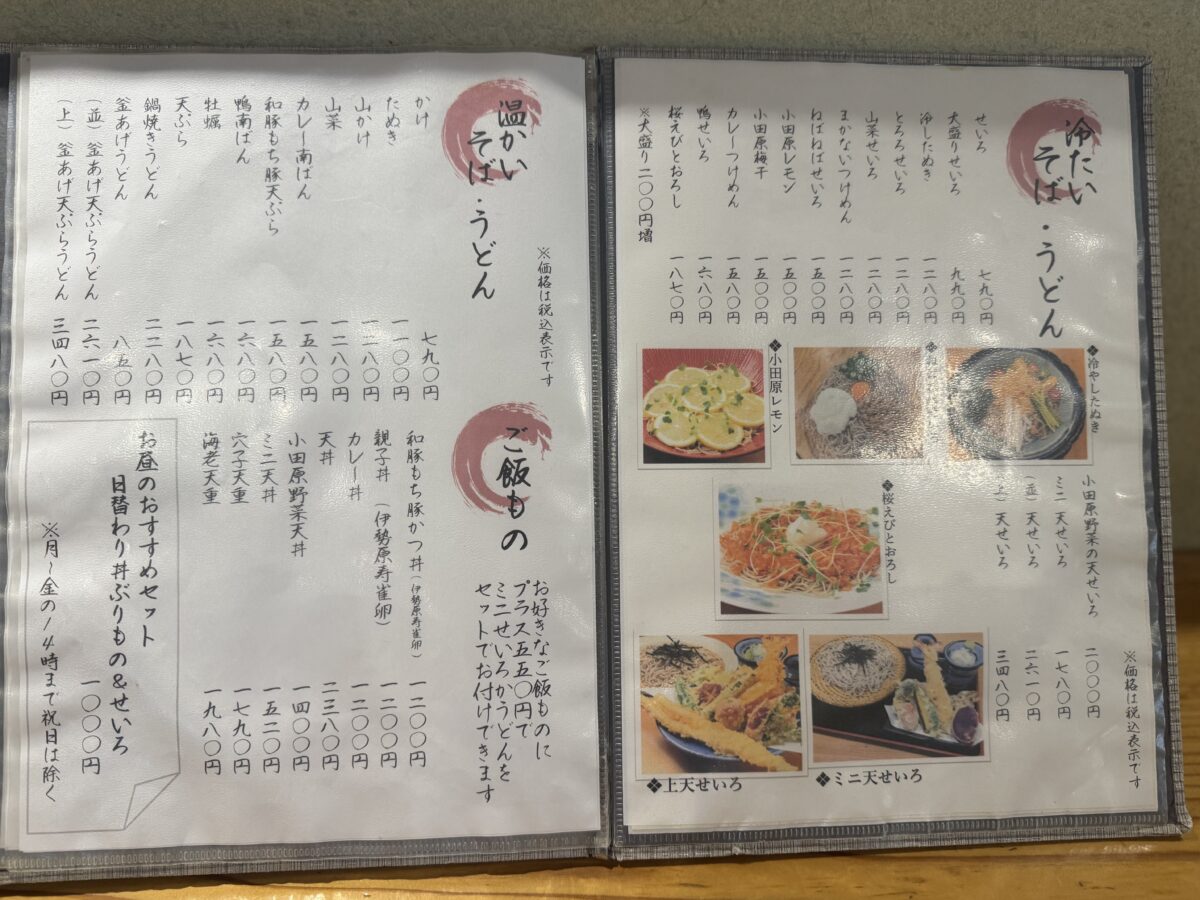 冷たい
そば・うどん
せいろ 七九〇円
大盛りせいろ 九九〇円
冷したぬき 一二八〇円
とろろせいろ 一二八〇円
山菜せいろ 一二八〇円
まかないつけめん 一二八〇円
ねばねばせいろ 一五〇〇円
小田原レモン 一五〇〇円
小田原梅干 一五〇〇円
カレーつけめん 一五八〇円
鴨せいろ 一六八〇円
桜えびとおろし 一八七〇円
※大盛り二〇〇円増
❖冷やしたぬき
❖小田原レモン
❖桜えびとおろし
※価格は税込表示です
小田原野菜の天せいろ 二〇〇〇円
ミニ天せいろ 一七八〇円
(並)天せいろ 二六一〇円
(上)天せいろ 三四八〇円
❖上天せいろ
❖ミニ天せいろ
※価格は税込表示です
温かい
そば・うどん
かけ 七九〇円
たぬき 一一〇〇円
山かけ 一二八〇円
山菜 一二八〇円
カレー南ばん 一五八〇円
和豚もち豚天ぷら 一五八〇円
鴨南ばん 一六八〇円
牡蠣 一六八〇円
天ぷら 一八七〇円
鍋焼きうどん 二二八〇円
釜あげうどん 八五〇円
(並)釜あげ天ぷらうどん 二六一〇円
(上)釜あげ天ぷらうどん 三四八〇円
ご飯もの
お好きなご飯ものに
プラス五五〇円で
ミニせいろかうどんを
セットでお付けできます
和豚もち豚かつ丼(伊勢原寿雀卵) 一二〇〇円
親子丼(伊勢原寿雀卵) 一二〇〇円
カレー丼 一二〇〇円
天丼 二二八〇円
小田原野菜天丼 一四〇〇円
ミニ天丼 一五二〇円
穴子天重 一七九〇円
海老天重 一九八〇円
お昼のおすすめセット
日替わり丼ぶりもの&せいろ
一〇〇〇円
※月~金の14時まで祝日は除く